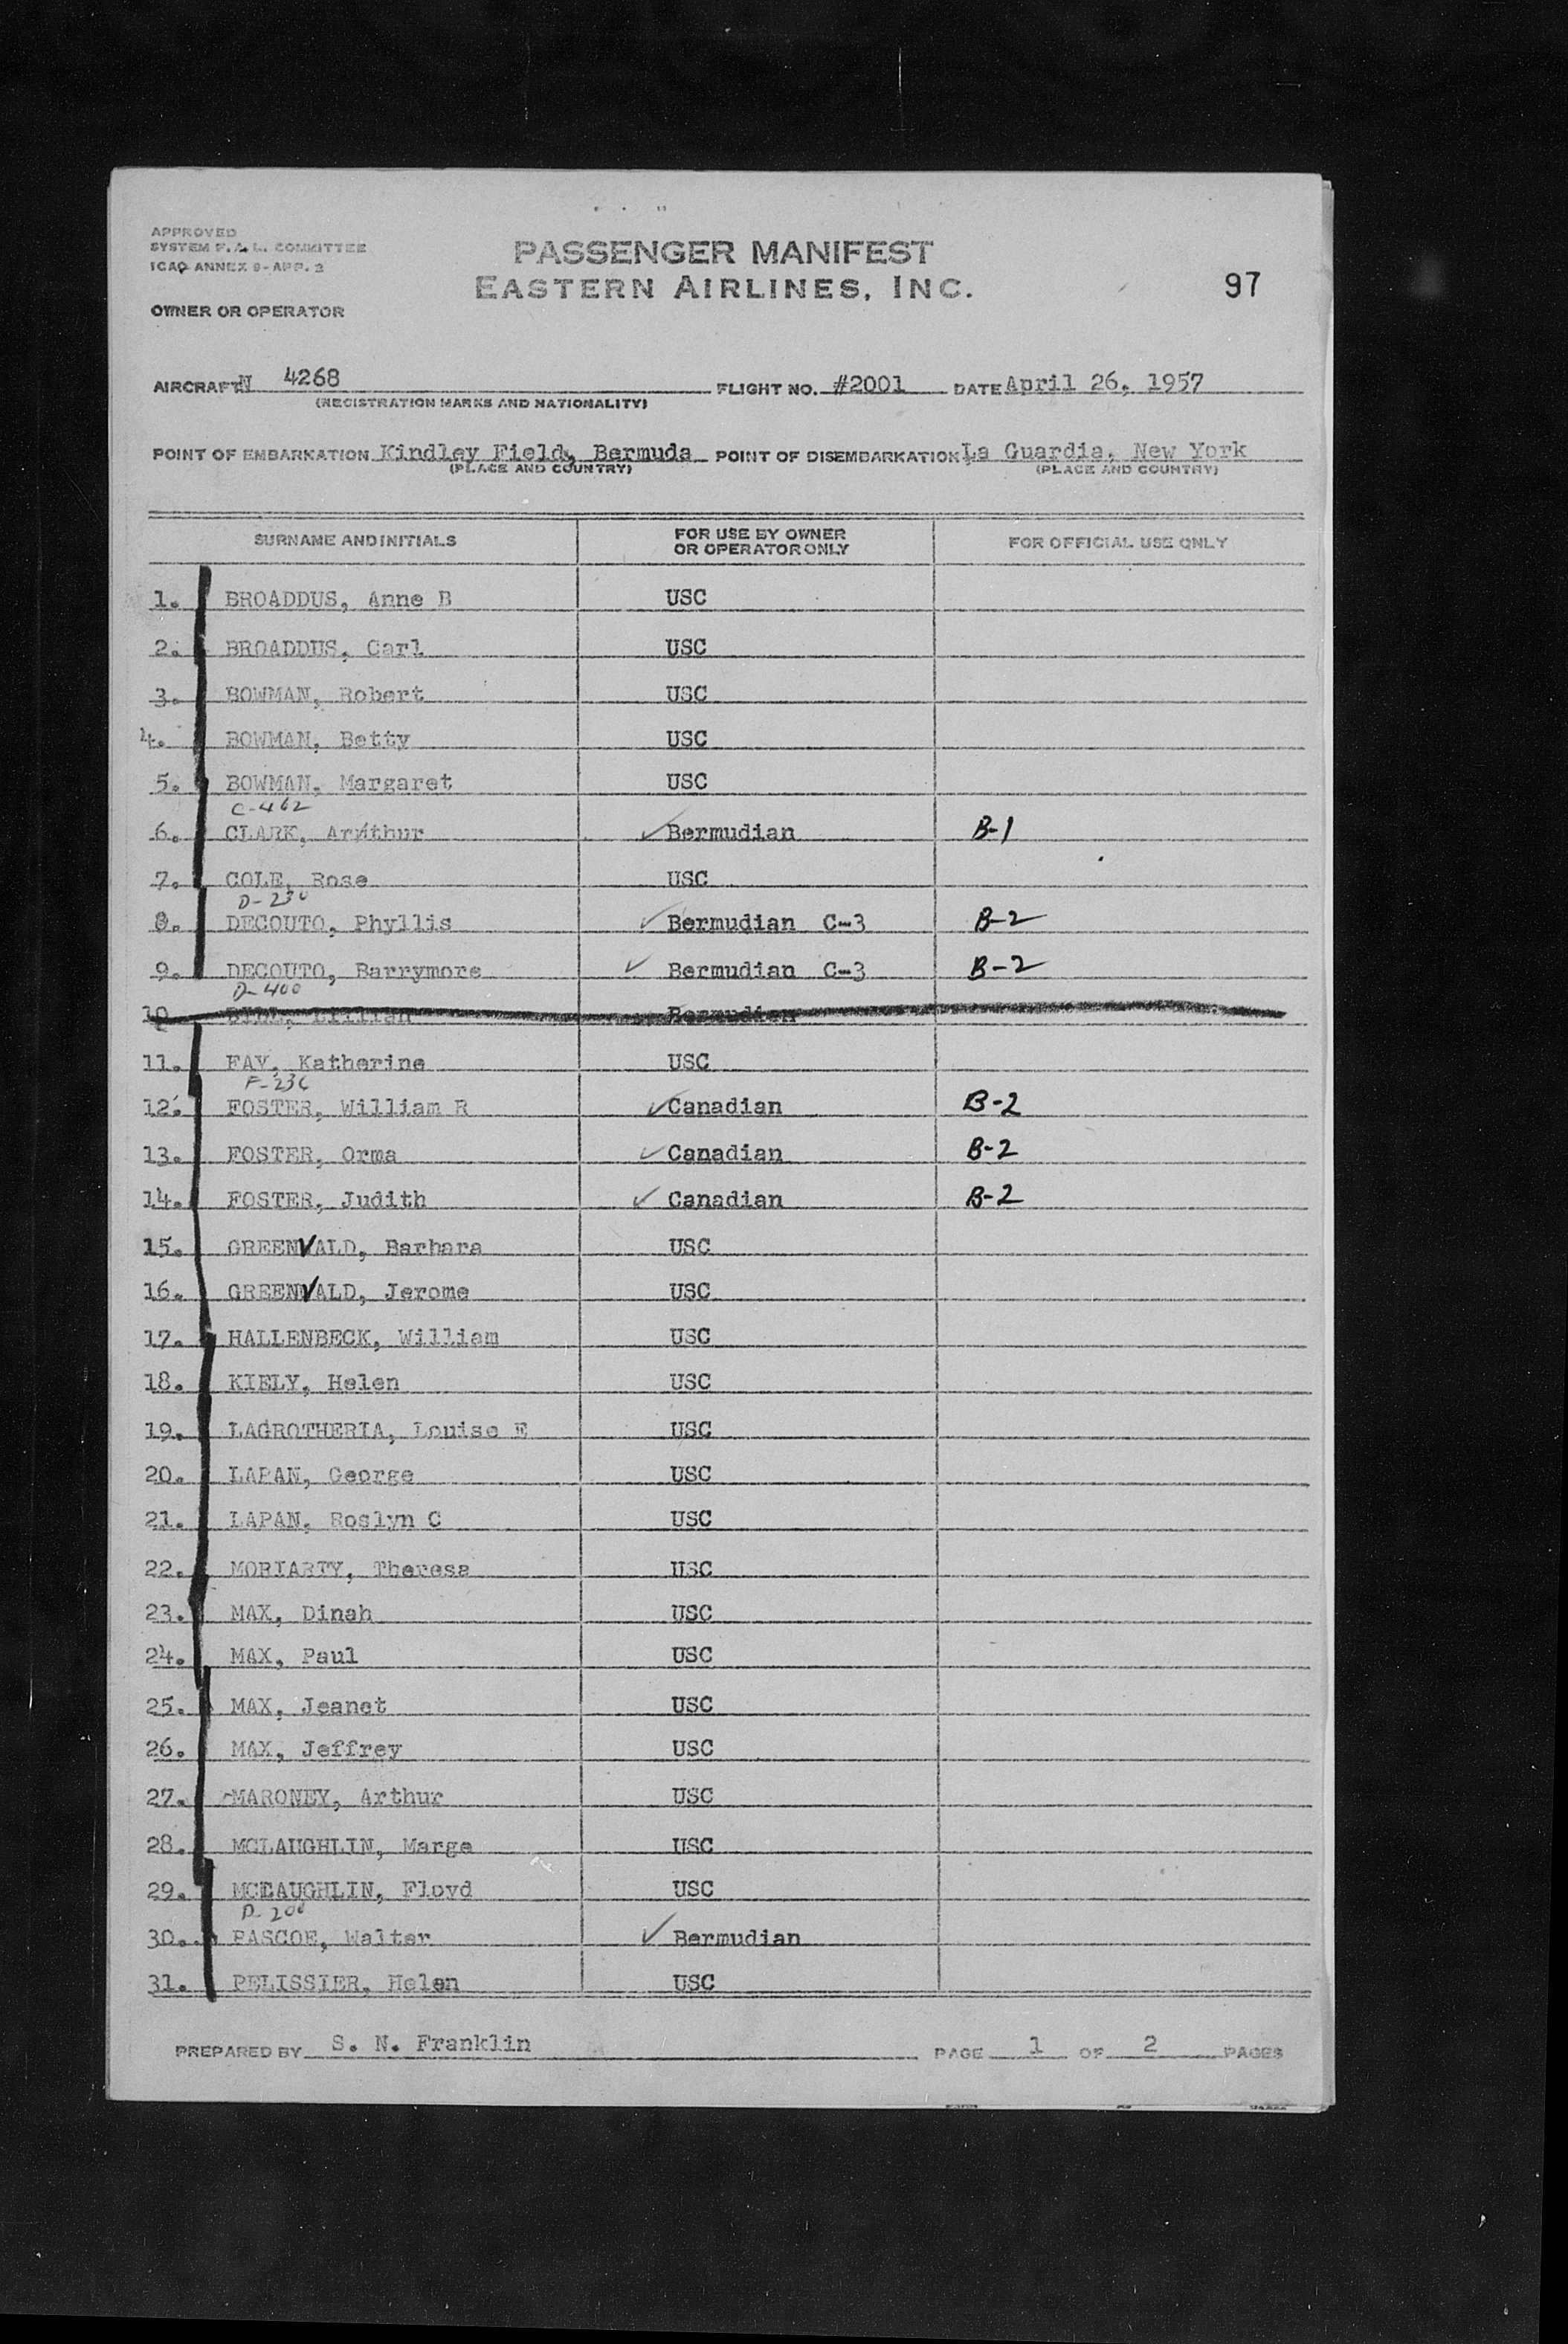 APPROVED
SYSTEM F. A. L. COMMITTEE
ICAO ANNEX 9-APP. 2
PASSENGER MANIFEST
EASTERN AIRLINES, INC.
97
OWNER OR OPERATOR
AIRCRAFT N 4268 FLIGHT NO. #2001 DATE April 26, 1957
(REGISTRATION MARKS AND NATIONALITY)
POINT OF EMBARKATION Kindley Field, Bermuda POINT OF DISEMBARKATION La Guardia, New York
(PLACE AND COUNTRY) (PLACE AND COUNTRY)
SURNAME AND INITIALS FOR USE BY OWNER OR OPERATOR ONLY FOR OFFICIAL USE ONLY
1. BROADDUS, Anne B USC
2. BROADDUS, Carl USC
3. BOWMAN, Robert USC
4. BOWMAN, Betty USC
5. BOWMAN, Margaret USC
C-462
6. CLARK, Arthur Bermudian B-1
7. COLE, Rose USC
D-230
8. DECOUTO, Phyllis Bermudian C-3 B-2
9. DECOUTO, Barrymore Bermudian C-3 B-2
D-400
10. Lillian Bermudian
11. FAY, Katherine USC
F-236
12. FOSTER, William R Canadian B-2
13. FOSTER, Orma Canadian B-2
14. FOSTER, Judith Canadian B-2
15. GREENVALD, Barbara USC
16. GREENVALD, Jerome USC
17. HALLENBECK, William USC
18. KIELY, Helen USC
19. LAGROTHERIA, Louise E USC
20. LAPAN, George USC
21. LAPAN, Roslyn C USC
22. MORIARTY, Theresa USC
23. MAX, Dinah USC
24. MAX, Paul USC
25. MAX, Jeanet USC
26. MAX, Jeffrey USC
27. MARONEY, Arthur USC
28. MCLAUGHLIN, Marge USC
29. MCLAUGHLIN, Floyd USC
P-200
30. PASCOE, Walter Bermudian
31. PELISSIER, Helen USC
PREPARED BY S. N. Franklin PAGE 1 OF 2 PAGES